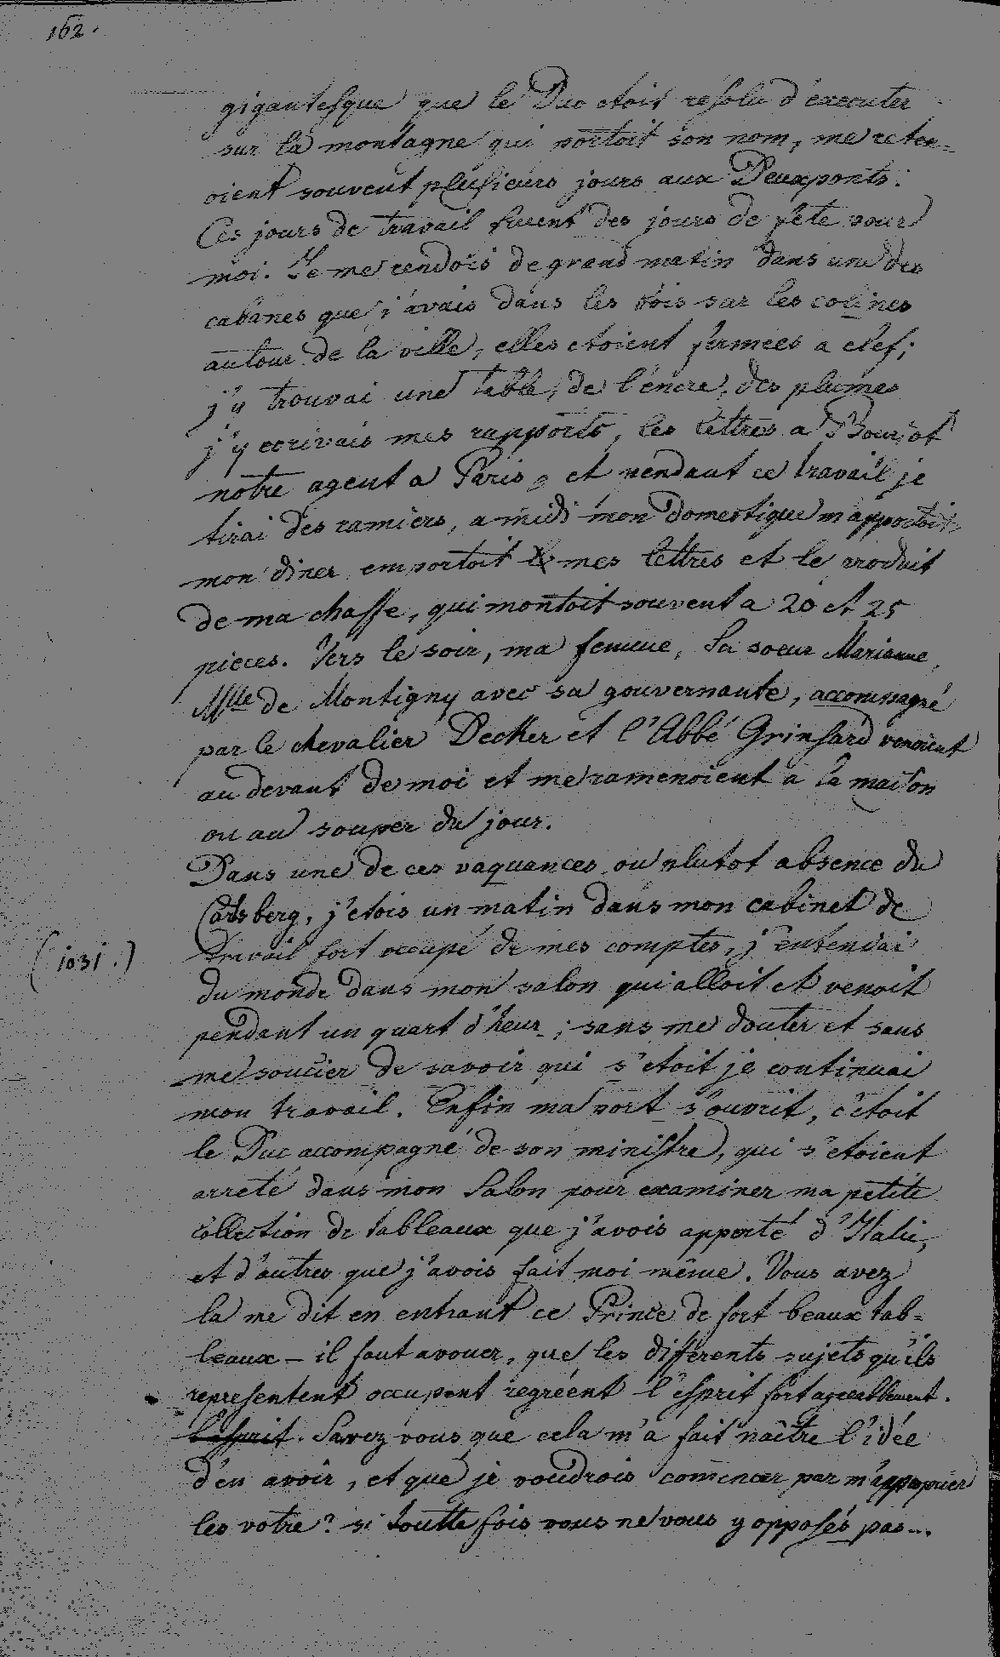 162.
gigantesque que le Duc etoit resolu d'éxecuter
sur la montagne qui portoit son nom, me reten=
oient souvent plusieurs jours aux Deuxponts.
Ces jours de travail furent des jours de fête pour
moi. Je me rendois de grand matin dans une des
cabanes que j'avais dans les bois sur les colines
autour de la ville, elles etoient fermées a clef;
j'y trouvai une table, de l'encre, des plumes
j'y ecrivais mes rapports, les lettres a Bourjot
notre agent a Paris, et pendant ce travail je
tirai des ramiers, a midi mon domestique m'apportoit
mon diner, emportoit mes lettres et le produit
de ma chasse, qui montoit souvent a 20 et 25
pieces. Vers le soir, ma femme, Sa soeur Marianne,
Mlle de Montigny avec sa gouvernante, accompagné
par le chevalier Decker et l'Abbé Grinsard venoient
au devant de moi et me ramenoient a la maison
ou au souper du jour.
Dans une de ces vaquances, ou plutot absence du
Carlsberg, j'etois un matin dans mon cabinet de
(1031.) travail fort occupé de mes comptes, j'entendai
du monde dans mon salon qui alloit et venoit
pendant un quart d'heur; sans me douter et sans
me soucier de savoir qui s'etoit je continuai
mon travail. Enfin ma port s'ouvrit, c'étoit
le Duc accompagné de son ministre, qui s'etoient
arreté dans mon Salon pour examiner ma petite
collection de tableaux que j'avois apporté d'Italie,
et d'autres que j'avois fait moi même. Vous avez
la me dit en entrant ce Prince de fort beaux tab=
leaux – il faut avouer, que les différents sujets qu'ils
representent occupent regréent l'esprit fort agreablement.
l'esprit. Savez vous que cela m'a fait naître l'idée
d'en avoir, et que je voudrois comencer par m'approprier
les votre? si toutte fois vous ne vous y opposés pas...